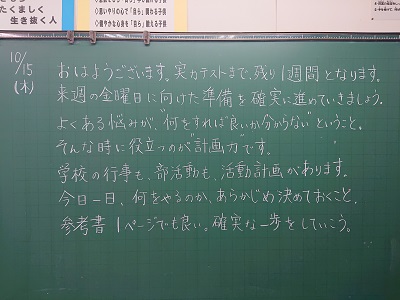 たくましく
生き抜く人
◇思いやりの心で「自ら」関わる子供
◇健やかな心身を「自ら」鍛える子供
10/15
(木)
おはようございます。実力テストまで、残り1週間となります。
来週の金曜日に向けた準備を確実に進めていきましょう。
よくある悩みが、"何をすれば良いか分からない"ということ。
そんな時に役立つのが"計画力"です。
学校の行事も、部活動も、活動計画があります。
今日一日、何をやるのか、あらかじめ決めておくこと。
参考書1ページでも良い。確実な一歩をしていこう。